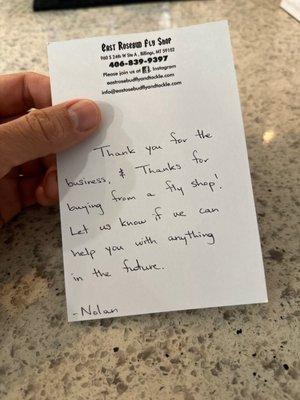 East Rosebud Fly Shop
900 S 24th W Ste A, Billings, MT 59102
406-839-9397
Please join us at f, Instagram
eastrosebudflyandtackle.com
info@eastrosebudflyandtackle.com
Thank you for the
business, & Thanks for
buying from a fly shop!
Let us know if we can
help you with anything
in the future.
- Nolan